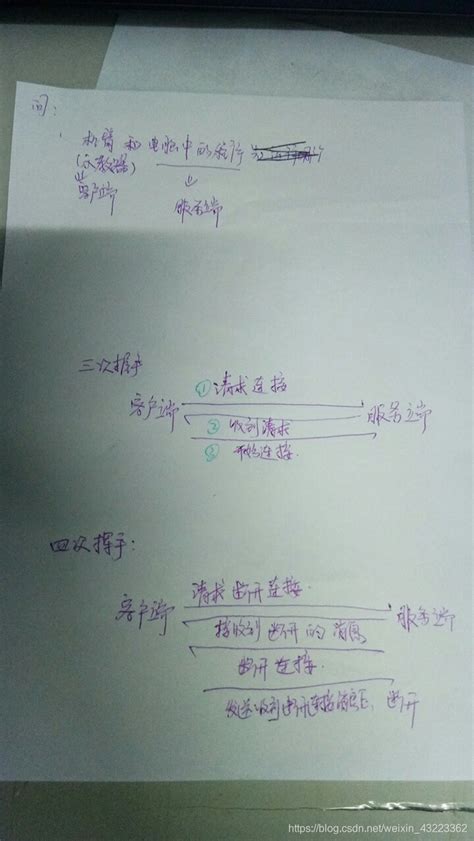 问：
机臂和电脑中的程序
(示教器)
客户端
服务端
三次握手
① 请求连接
客户端 服务端
② 收到请求
③ 开始连接
四次挥手：
请求断开连接.
客户端 服务端
接收到断开的消息
断开连接.
发送收到断开连接消息、断开
https://blog.csdn.net/weixin_43223362